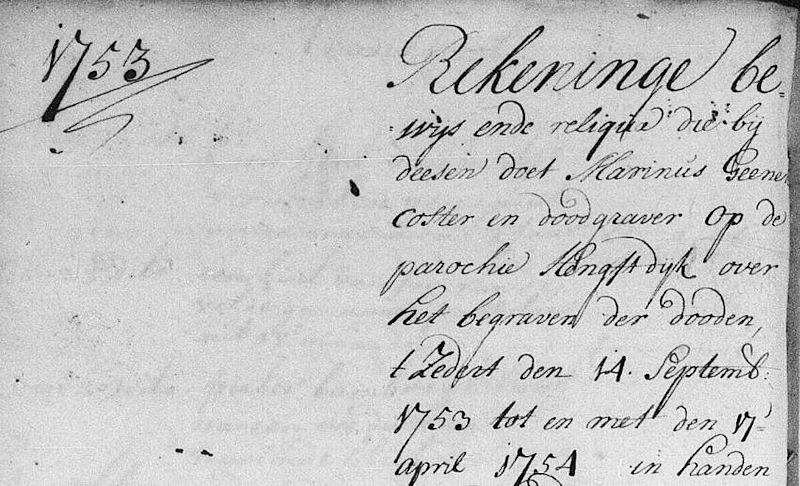 1753
Rekeninge be-
wijs ende reliqua die bij
deesen doet Marinus Geene
coster en doodgraver op de
parochie Hengstdijk over
het begraven der dooden,
t Zedert den 14. Septemb:
1753 tot en met den 17
april 1754 in handen